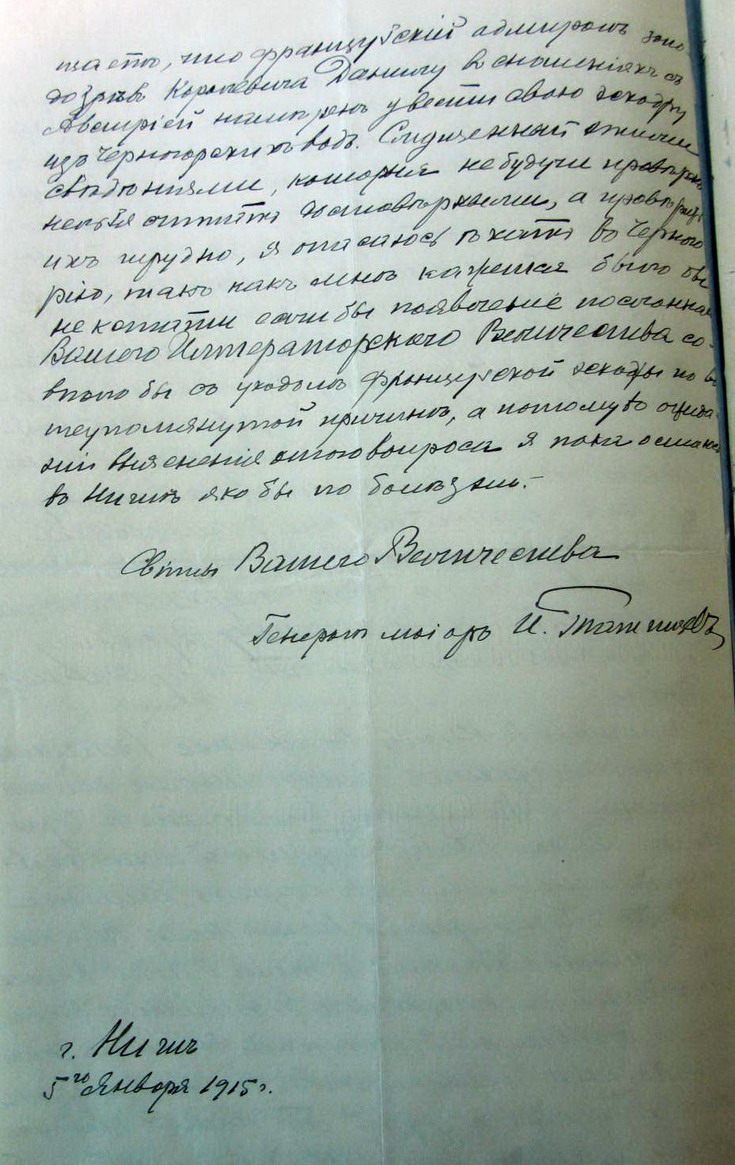 что французскій адмиралъ запо-
дозрѣвъ Королевича Данилу въ сношеніяхъ съ
Австріей намѣренъ увести свою эскадру
изъ Черногорскихъ водъ. Смущенный этими
свѣдѣніями, которыя не будучи провѣрены
нельзя считать достовѣрными, а провѣрить
ихъ трудно, я опасаюсь ѣхать въ Черного-
рію, такъ какъ мнѣ кажется было бы
не кстати если бы появленіе посланнаго
Вашего Императорскаго Величества сов-
пало бы съ уходомъ французской эскадры по вы-
шеупомянутой причинѣ, а потому въ ожида-
ніи выясненія этого вопроса я пока остаюсь
въ Нишѣ якобы по болѣзни.-
Свиты Вашего Величества
Генералъ маіоръ И. Татищевъ
г. Нишъ
5го Января 1915 г.